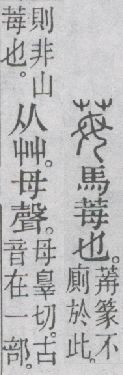 莓馬莓也。莓篆不廁於此。
則非山莓也。从艸。母聲。母辠切。古音在一部。